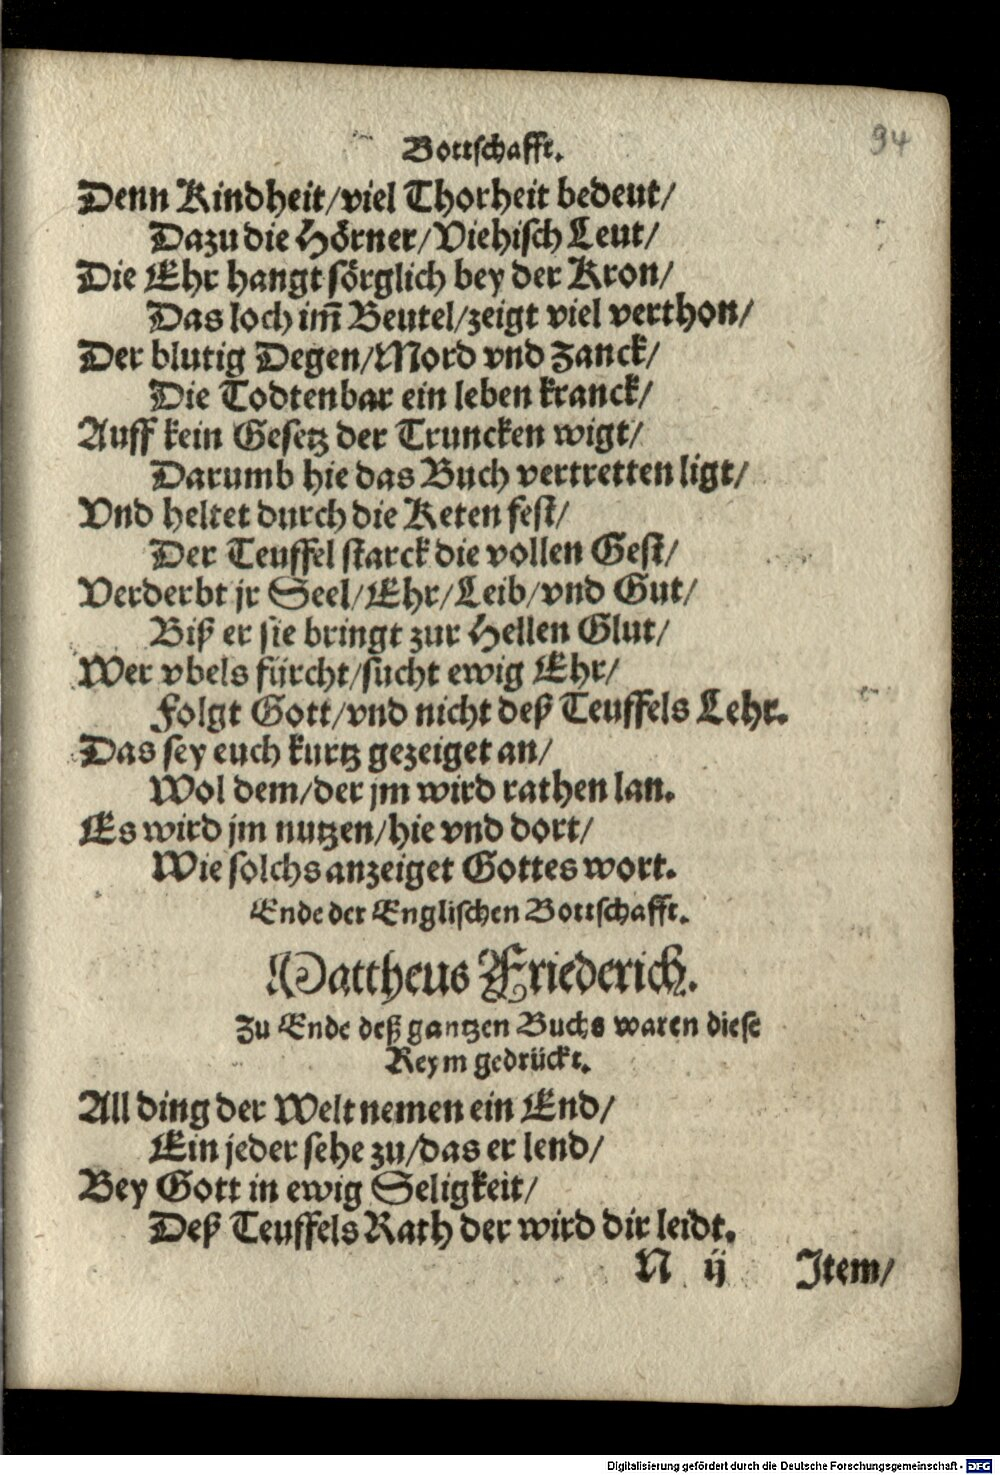 94
Bottschafft.
Denn Kindheit/viel Thorheit bedeut/
Dazu die Hörner/Viehisch Leut/
Die Ehr hangt sörglich bey der Kron/
Das loch im̃ Beutel/zeigt viel verthon/
Der blutig Degen/Mord vnd Zanck/
Die Todtenbar ein leben kranck/
Auff kein Gesetz der Truncken wigt/
Darumb hie das Buch vertretten ligt/
Vnd heltet durch die Keten fest/
Der Teuffel starck die vollen Gest/
Verderbt jr Seel/Ehr/Leib/vnd Gut/
Biß er sie bringt zur Hellen Glut/
Wer vbels fürcht/sucht ewig Ehr/
Folgt Gott/vnd nicht deß Teuffels Lehr.
Das sey euch kurtz gezeiget an/
Wol dem/der jm wird rathen lan.
Es wird jm nutzen/hie vnd dort/
Wie solchs anzeiget Gottes wort.
Ende der Englischen Bottschafft.
Mattheus Friederich.
Zu Ende deß gantzen Buchs waren diese
Reym gedrückt.
All ding der Welt nemen ein End/
Ein jeder sehe zu/das er lend/
Bey Gott in ewig Seligkeit/
Deß Teuffels Rath der wird dir leidt.
N ij Item/
Digitalisierung gefördert durch die Deutsche Forschungsgemeinschaft - DFG